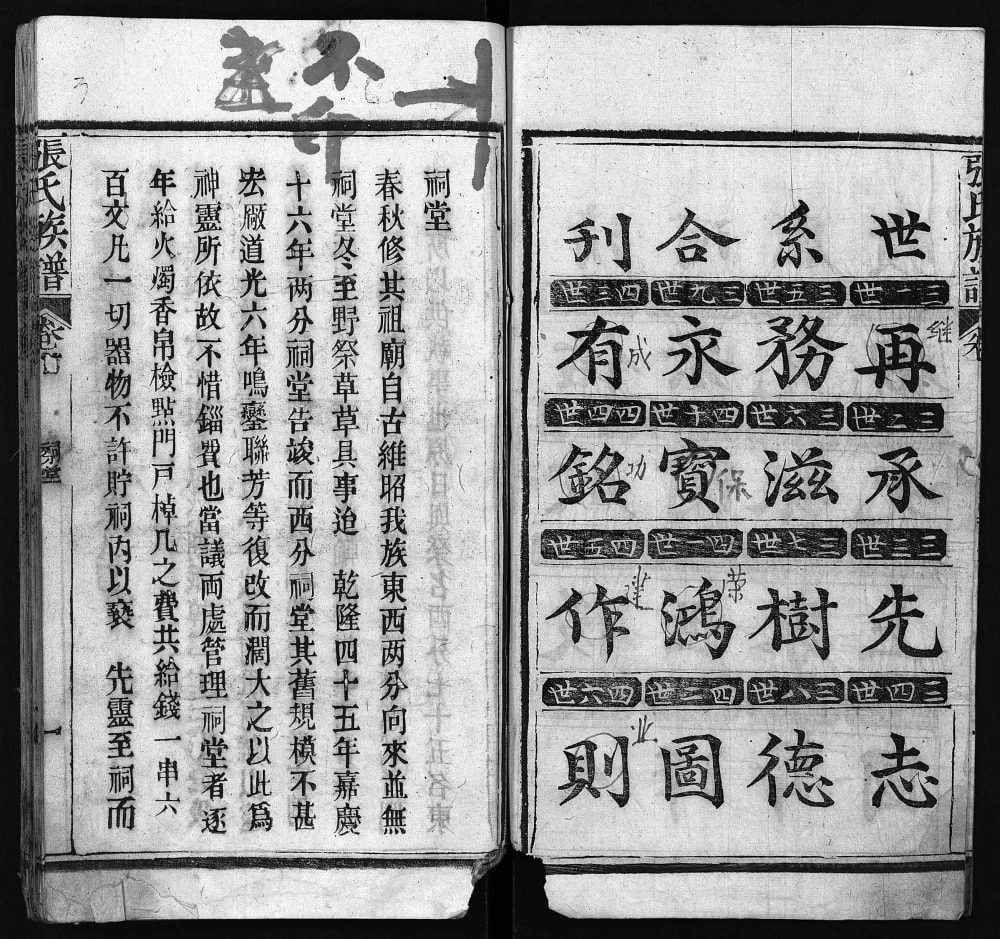 張氏族譜
世 三一世 再 三二世 承 三三世 先 三四世 志
继
系 三五世 務 三六世 滋 三七世 樹 三八世 德
合 三九世 永 四十世 寶 四一世 鴻 四二世 圖
保
荣
刊 四三世 有 四四世 銘 四五世 作 四六世 則
成
功
建
业
不印
祠堂
春秋修其祖廟自古維昭我族東西两分向來並無
祠堂冬至野祭草草具事迨 乾隆四十五年嘉慶
十六年两分祠堂告竣而西分祠堂其舊規模不甚
宏厰道光六年鳴鑾聯芳等復改而濶大之以此爲
神靈所依故不惜錙費也當議両處管理祠堂者逐
年給火燭香帛檢點門戸棹几之費共給錢一串六
百文凡一切器物不許貯祠内以褻 先靈至祠而
張氏族譜
祠堂
一